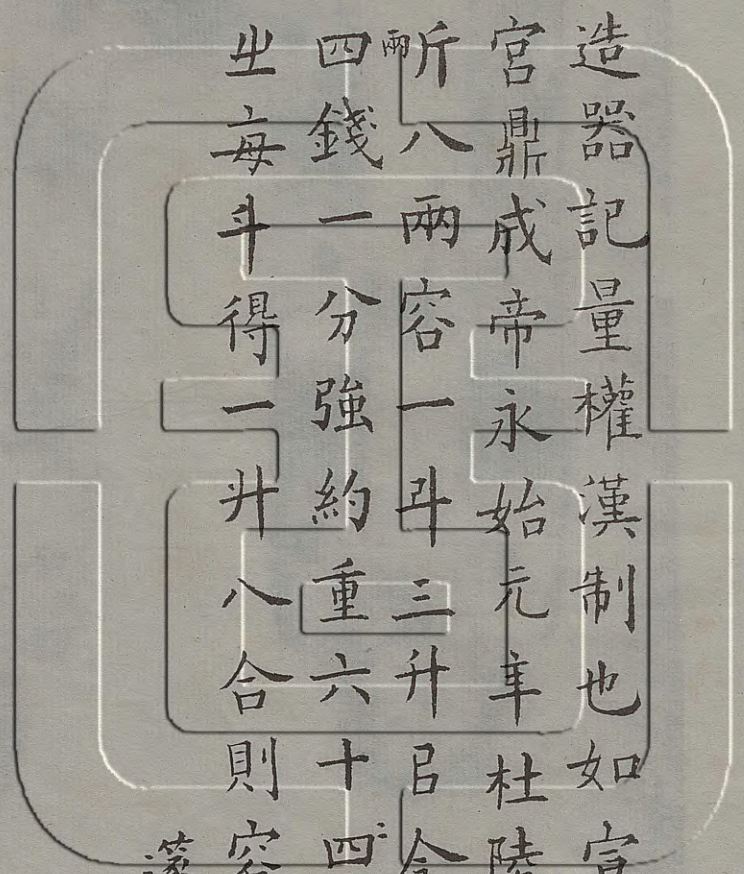 造器記量權漢制也如官
宮鼎成帝永始元年杜陵
斤八兩容一斗三升㠯今
兩四錢一分強約重六十四
㞢每斗得一升八合則容